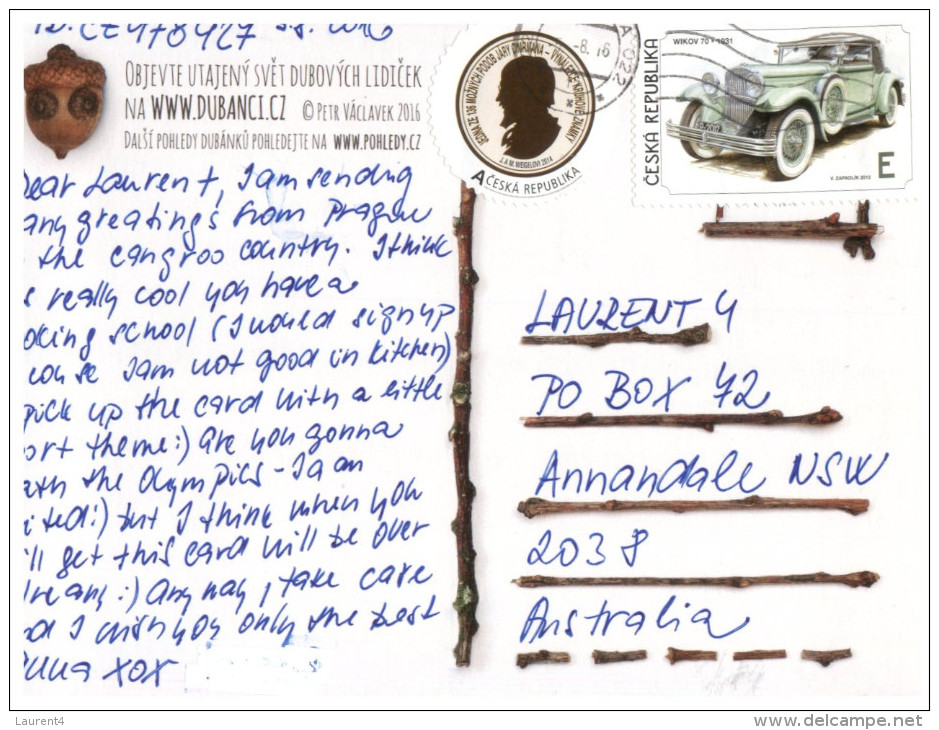 ID: CZ 978427
OBJEVTE UTAJENÝ SVĚT DUBOVÝCH LIDIČEK
NA WWW.DUBANCI.CZ © PETR VÁCLAVEK 2016
DALŠÍ POHLEDY DUBÁNKŮ POHLEDEJTE NA WWW.POHLEDY.CZ
JEDNA ZE 136 MOŽNÝCH PODOB JÁRY CIMRMANA - VYNÁLEZCE KRUHOVÉ ZNÁMKY
J. A M. WEIGELOVI 2014
A ČESKÁ REPUBLIKA
-8.16
WIKOV 70 • 1931
ČESKÁ REPUBLIKA
V. ZAPADLÍK 2012
E
ear Laurent, I am sending
any greatings from Prague
the cangroo country. I think
s really cool you have a
oking school (I would sign up
cou se I am not good in kitchen)
pick up the card with a little
ort theme :) are you gonna
atch the Olympics - I am
ited :) but I think when you
ill get this card will be over
lready :) Any way, take care
nd I wish you only the best
nna xox
LAURENT Y
PO BOX 42
Annandale NSW
2038
Australia
Laurent4
www.delcampe.net